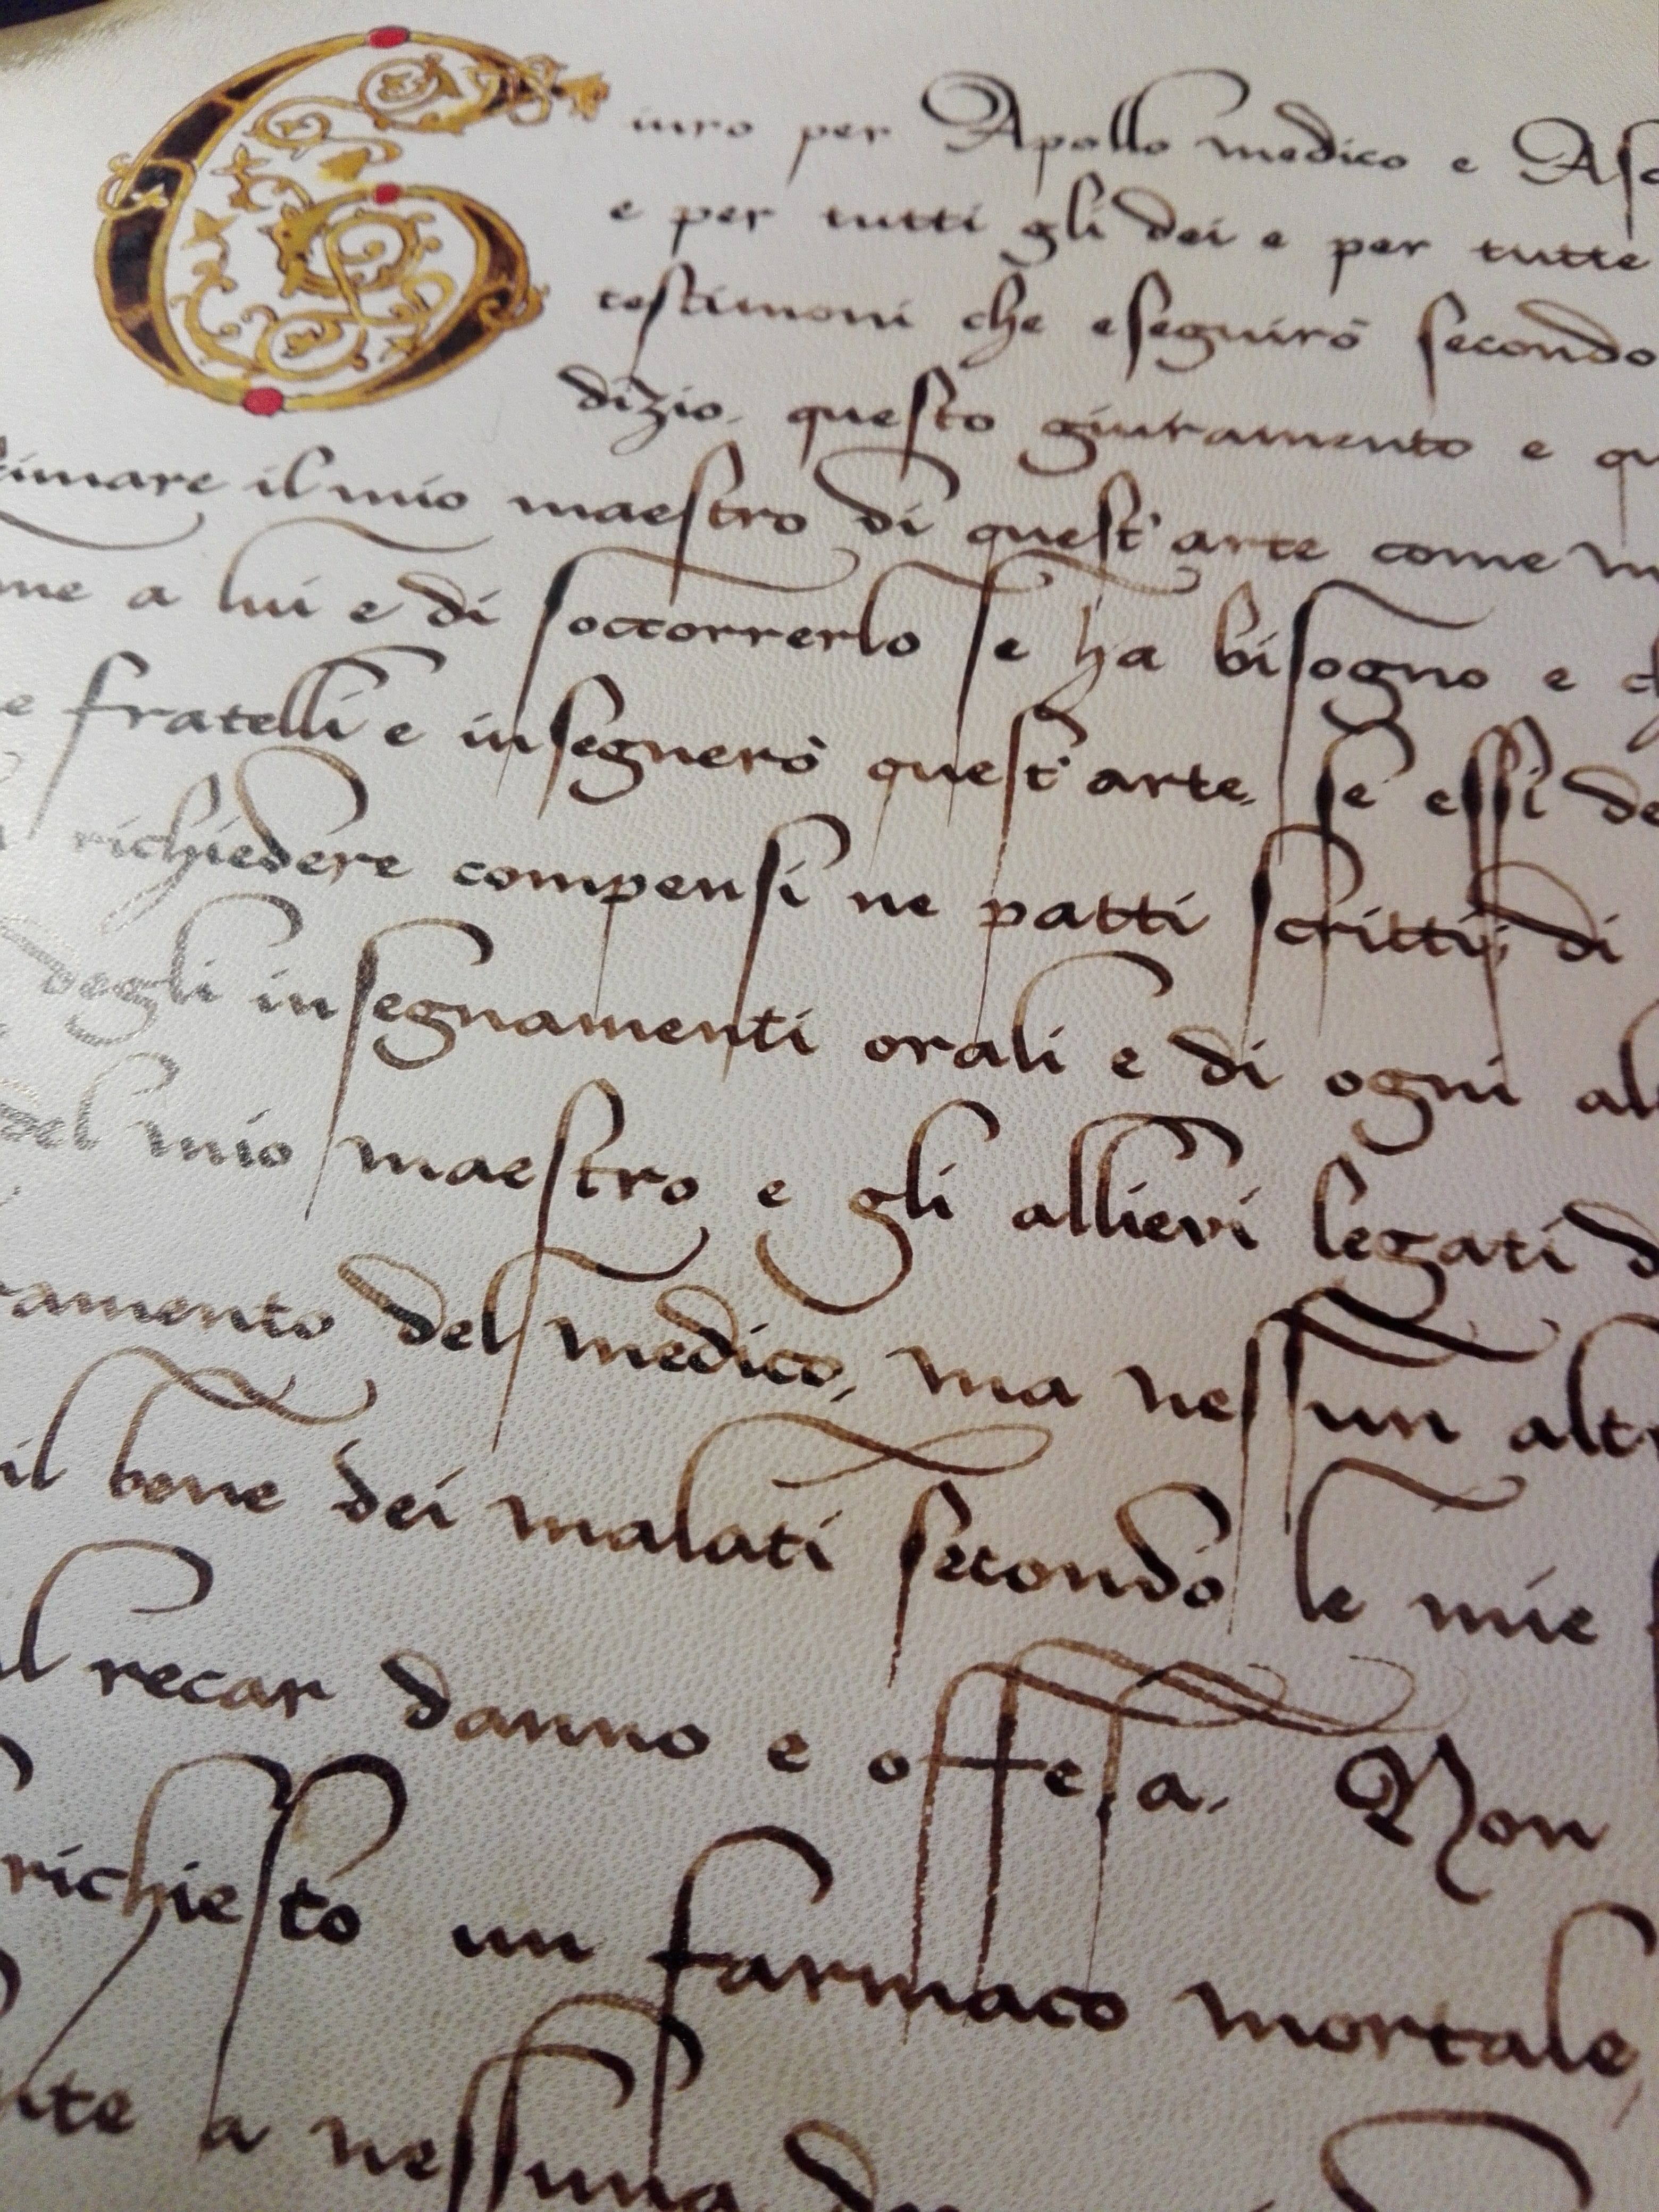 Giuro per Apollo medico e Asc
e per tutti gli dei e per tutte
testimoni che eseguirò secondo
dizio, questo giuramento e qu
timare il mio maestro di quest'arte come m
me a lui e di soccorrerlo se ha bisogno e c
e fratelli e insegnerò quest'arte, se essi de
richiedere compensi ne patti scritti; di
degli insegnamenti orali e di ogni alt
del mio maestro e gli allievi legati d
ramento del medico, ma nessun altr
il bene dei malati secondo le mie
l recar danno e offesa. Non
richiesto un farmaco mortale,
nte a nessuna